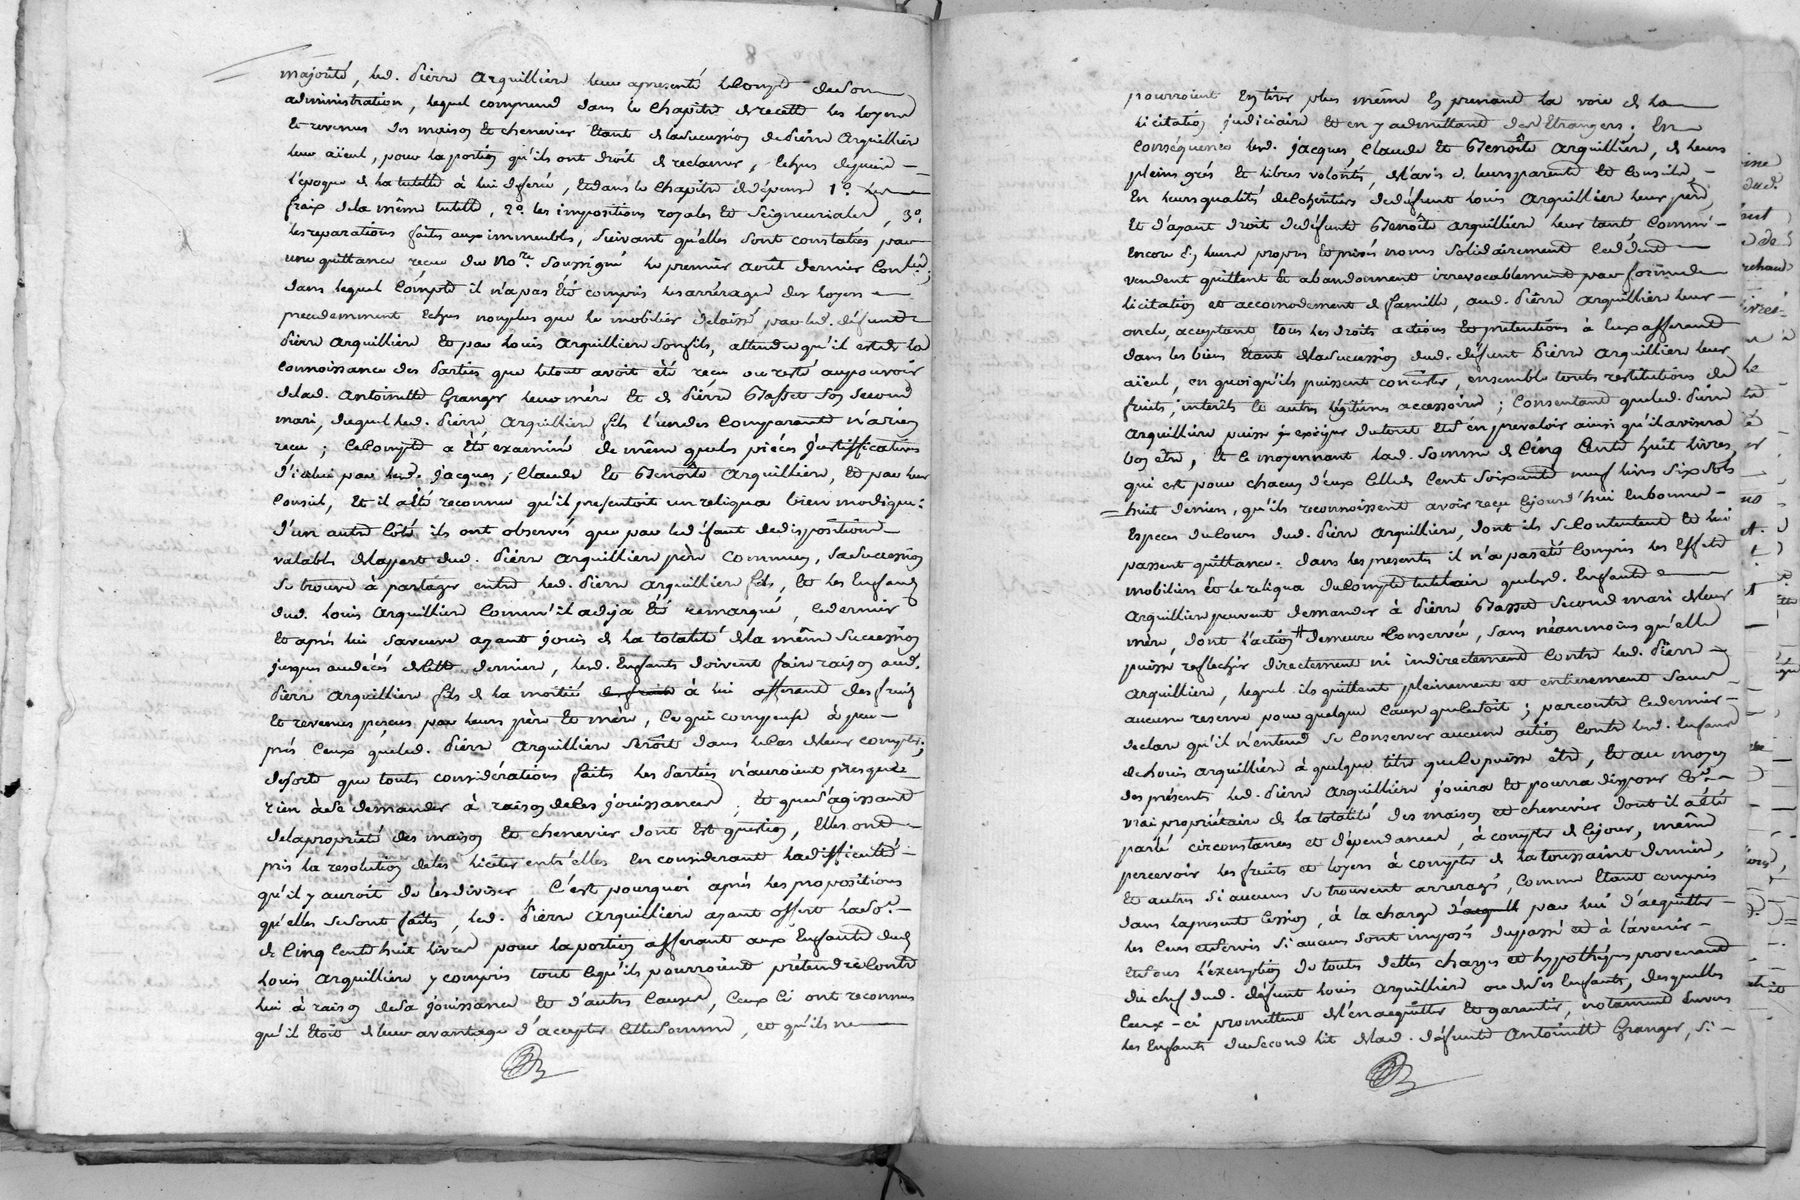 majorité, led. Pierre Arquilliere leur a presenté le Compte de son
administration, lequel comprend dans le Chapitre de recette les loyers
Et revenus des maison Et chenevier Etant de la succession de Pierre Arquilliere
leur aïeul, pour la portion qu'ils ont droit de reclamer, Echus depuis
l'époque de la tutelle à lui deferée, Et dans le Chapitre de dépense 1°. les
fraix de la même tutelle, 2°. les impositions royales Et Seigneuriales, 3°.
les reparations faites aux immeubles, Suivant qu'elles sont constatées par
une quittance reçue du No.re Soussigné le premier Août dernier Conlée;
dans lequel Compte il n'a pas Eté compris les arrérages des loyers
precedemment Echus non plus que le mobilier délaissé par led. défunt
Pierre Arquilliere Et par Louis Arquilliere Son fils, attendu qu'il est de la
connoissance des Parties que le tout avoit été reçu ou resté au pouvoir
de lad. Antoinette Granger leur mère Et de Pierre Basset Son Second
mari, duquel led. Pierre Arquilliere fils l'un des Comparants n'a rien
reçu; Ce Compte a Eté examiné de même que les pièces Justifficatives
d'icelui par lesd. Jacques, Claude Et Benoîte Arquilliere, Et par leur
Conseil, Et il a Eté reconnu qu'il presentoit un reliqua bien modique:
d'un autre Côté ils ont observés que par le défaut de disposition
valable de la part dud. Pierre Arquilliere père Commun, Sa Succession
Se trouve à partager entre led. Pierre Arquilliere fils, Et les Enfans
dud. Louis Arquilliere Comm'il a deja Eté remarqué, Ce dernier
Et après lui Sa veuve ayant joui de la totalité de la même Succession
jusques au décès de cette derniere, lesd. Enfants doivent faire raison aud.
Pierre Arquilliere fils de la moitié à lui afferente des fruits
Et revenus perçus par leurs père Et mère, Ce qui compense à peu
près Ceux que led. Pierre Arquilliere Seroit dans le Cas de leur compter;
desorte que toutes considérations faites les Parties n'auroient presque
rien à se demander à raison de les jouissances, Et que s'agissant
de la propriété des maison Et chenevier dont Est question, Elles ont
pris la resolution de les liciter entr'elles En considerant la difficulté
qu'il y auroit de les diviser C'est pourquoi après les propositions
qu'elles Se sont faites, led. Pierre Arquilliere ayant offert la So.e
de Cinq Cents huit livres pour la portion afferant aux Enfants dud.
Louis Arquilliere y compris tout Ce qu'ils pourroient prétendre Contre
lui à raison de Sa jouissance Et d'autres Causes, Ceux Ci ont reconnus
qu'il Etoit de leur avantage d'accepter Cette Somme, et qu'ils ne
pourroient En tirer plus même En prenant la voie de la
licitation judiciaire Et en y admettant des Etrangers. En
Conséquence lesd. Jacques Claude Et Benoîte Arquilliere, de leurs
pleins grés Et libres volontés, de l'avis de leurs parents Et Conseils,
En leurs qualités de Coheritiers de défunt Louis Arquilliere leur père
Et d'ayant droit de défunte Benoîte Arquilliere leur tante Comm'
Encore En leurs propres Et privés noms Solidairement Cedent
vendent quittent Et abandonnent irrevocablement par forme de
licitation et accomodement de famille, aud. Pierre Arquilliere leur
oncle, acceptant tous les droits actions Et pretentions à Eux afferant
dans les biens Etant de la Succession dud. défunt Pierre Arquilliere leur
aïeul, en quoi qu'ils puissent consister, ensemble toutes restitutions de
fruits, intérêts Et autres légitimes accessoires; Consentant que led. Pierre
Arquilliere puisse exeiger du tout Et s'en prevaloir ainsi qu'il avisera
bon être, Et Ce moyennant lad. Somme de Cinq Cents huit livres,
qui est pour chacun d'eux Celle de Cent Soixante neuf livres Six Sols
huit deniers, qu'ils reconnoissent avoir reçu Cejourd'hui En bonnes
Especes du Cours dud. Pierre Arquilliere, dont ils Se Contentent Et lui
passent quittance. dans les presentes il n'a pas été Compris les Effets
mobiliers Et le reliqua du Compte tutelair que lesd. Enfants
Arquilliere peuvent demander à Pierre Basset Second mari de leur
mère, dont l'action demeure Conservée, Sans néanmoins qu'elle
puisse reflechir directement ni indirectement Contre led. Pierre
Arquilliere, lequel ils quittent pleinement et entierement Sans
aucune reserve pour quelque Cause que Ce Soit; par contre Ce dernier
declare qu'il n'entend Se Conserver aucune action Contre lesd. Enfans
de Louis Arquilliere à quelque titre que Ce puisse être, Et au moyen
des présentes led. Pierre Arquilliere jouira Et pourra disposer Co.e
vrai propriétaire de la totalité des maison et chenevier dont il a Eté
parlé circonstances et dépendances, à compter de Cejour, même
percevoir les fruits et loyers à compter de la toussaint derniere,
Et autres Si aucuns Se trouvent arreragés, Comme Etant compris
dans la presente Cession, à la charge par lui d'acquitter
les Cens Et Servis Si aucuns Sont imposés du passé et à l'avenir
Et Sous l'exemption de toutes dettes charges et hypothéques provenant
du chef dud. défunt Louis Arquilliere ou de Ses Enfants, desquelles
Ceux-ci promettent de l'en acquitter Et garantir, notamment Envers
les Enfants du Second lit de lad. défunte Antoinette Granger, Si